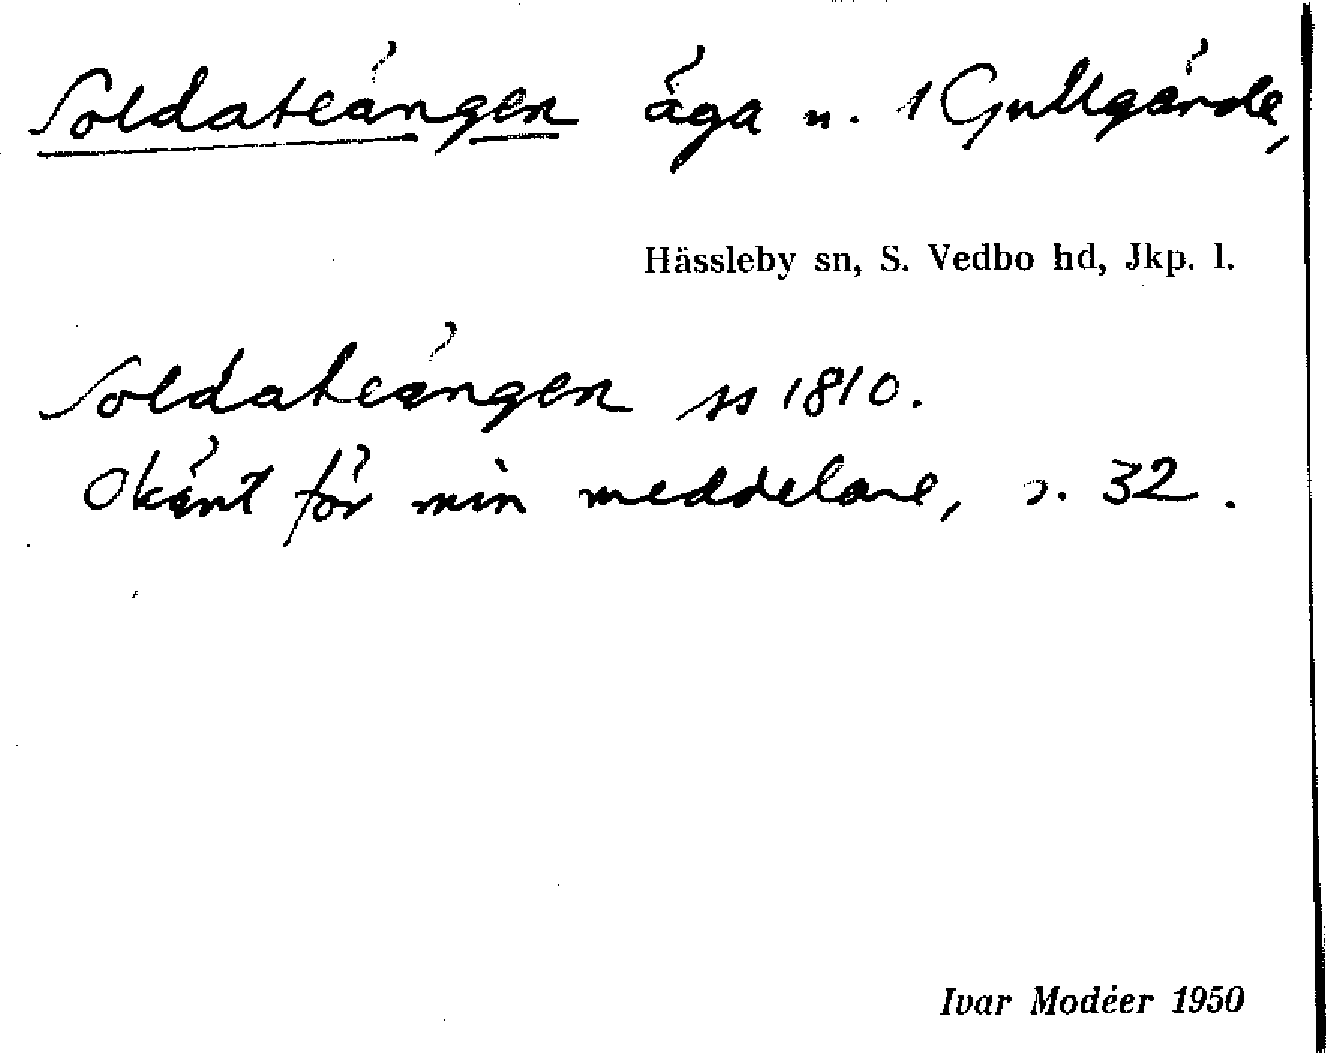 Soldateängen äga n. 1 Gullgärde,
Hässleby sn, S. Vedbo hd, Jkp. l.
Soldateängen ss 1810.
Okänt för min meddelare, s. 32.
Ivar Modéer 1950